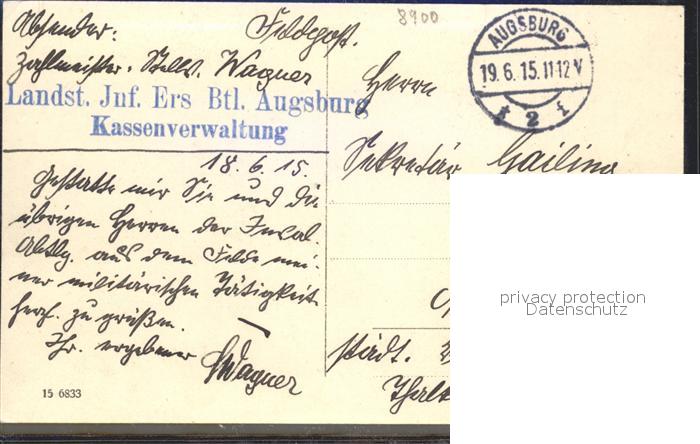 8900
Absender:
Feldpost.
Zahlmeister-Stellv. Wagner
Landst. Jnf. Ers Btl. Augsburg
Kassenverwaltung
AUGSBURG
19.6.15.11-12V
* 2 f
Herrn
Sekretär Gailing
18.6.15.
Gestatte mir Sie und die
übrigen Herren der Inval.
Abtlg. aus dem Felde mei-
ner militärischen Tätigkeit
herzl. zu grüßen.
Ihr ergebener
Wagner
städt.
Thalk
15 6833
privacy protection
Datenschutz